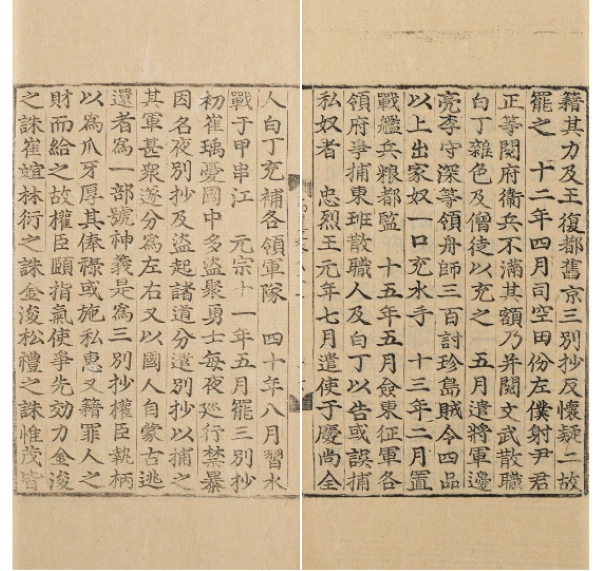 人白丁充補各領軍隊　四十年八月習水
戰于甲串江　元宗十一年五月罷三別抄
初崔瑀憂國中多盜聚勇士每夜巡行禁暴
因名夜別抄及盜起諸道分遣別抄以捕之
其軍甚衆遂分爲左右又以國人自蒙古逃
還者爲一部號神義是爲三別抄權臣執柄
以爲爪牙厚其俸祿或施私惠又籍罪人之
財而給之故權臣頤指氣使爭先効力金浚
之誅崔竩林衍之誅金浚松禮之誅惟茂皆
籍其力及王復都舊京三別抄反懷疑二故
罷之　十二年四月司空田份左僕射尹君
正等閱府衛兵不滿其額乃并閱文武散職
白丁雜色及僧徒以充之　五月遣將軍邊
亮李守深等領舟師三百討珍島賊令四品
以上出家奴一口充水手　十三年二月置
戰艦兵粮都監　十五年五月僉東征軍各
領府爭捕東班散職人及白丁以告或誤捕
私奴者　忠烈王元年七月遣使于慶尚全